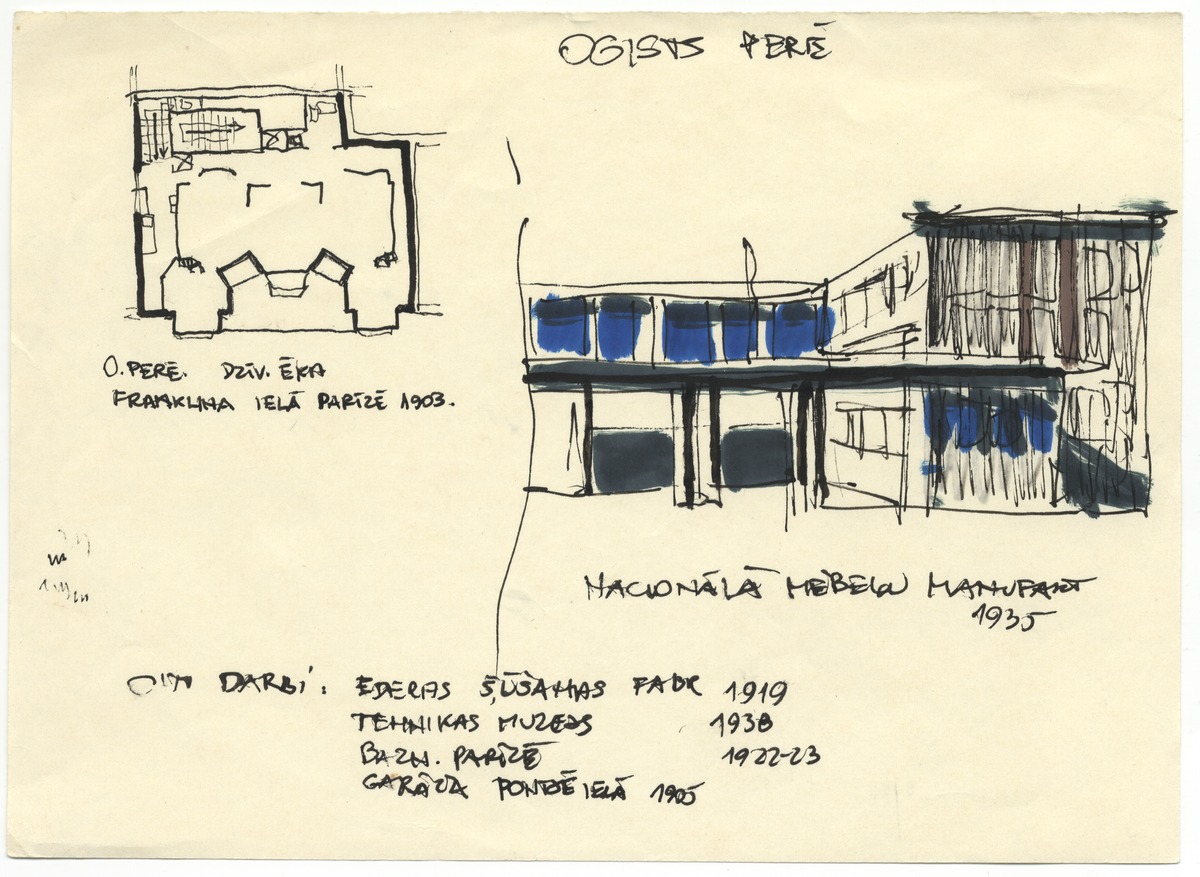 OGISTS PERĒ
O. PERE. DZĪV. ĒKA
FRANKLINA IELĀ PARĪZĒ 1903.
NACIONĀLĀ MĒBEĻU MANUFAKT
1935
CITI DARBI: EDERAS ŠŪŠANAS FABR 1919
TEHNIKAS MUZEJS 1938
BAZN. PARĪZĒ 1922-23
GARĀŽA PONTJĒ IELĀ 1905